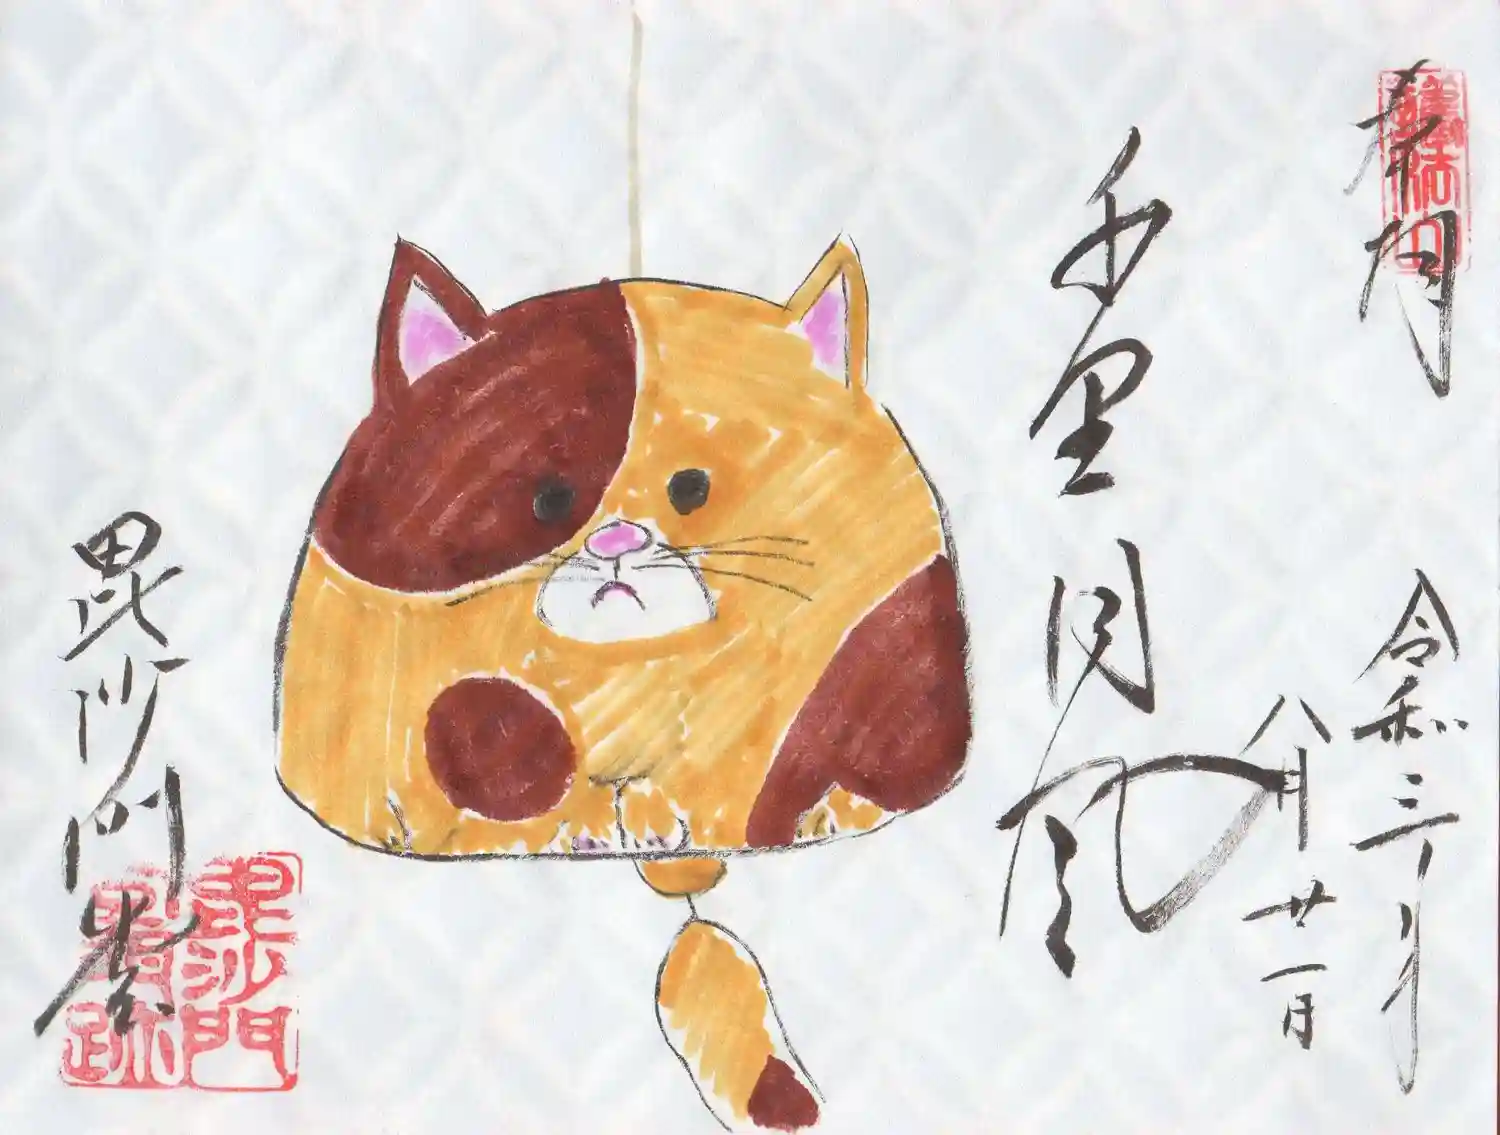 奉拝
千里同風
令和三年
八月廿一日
毘沙門堂
毘沙門
門跡